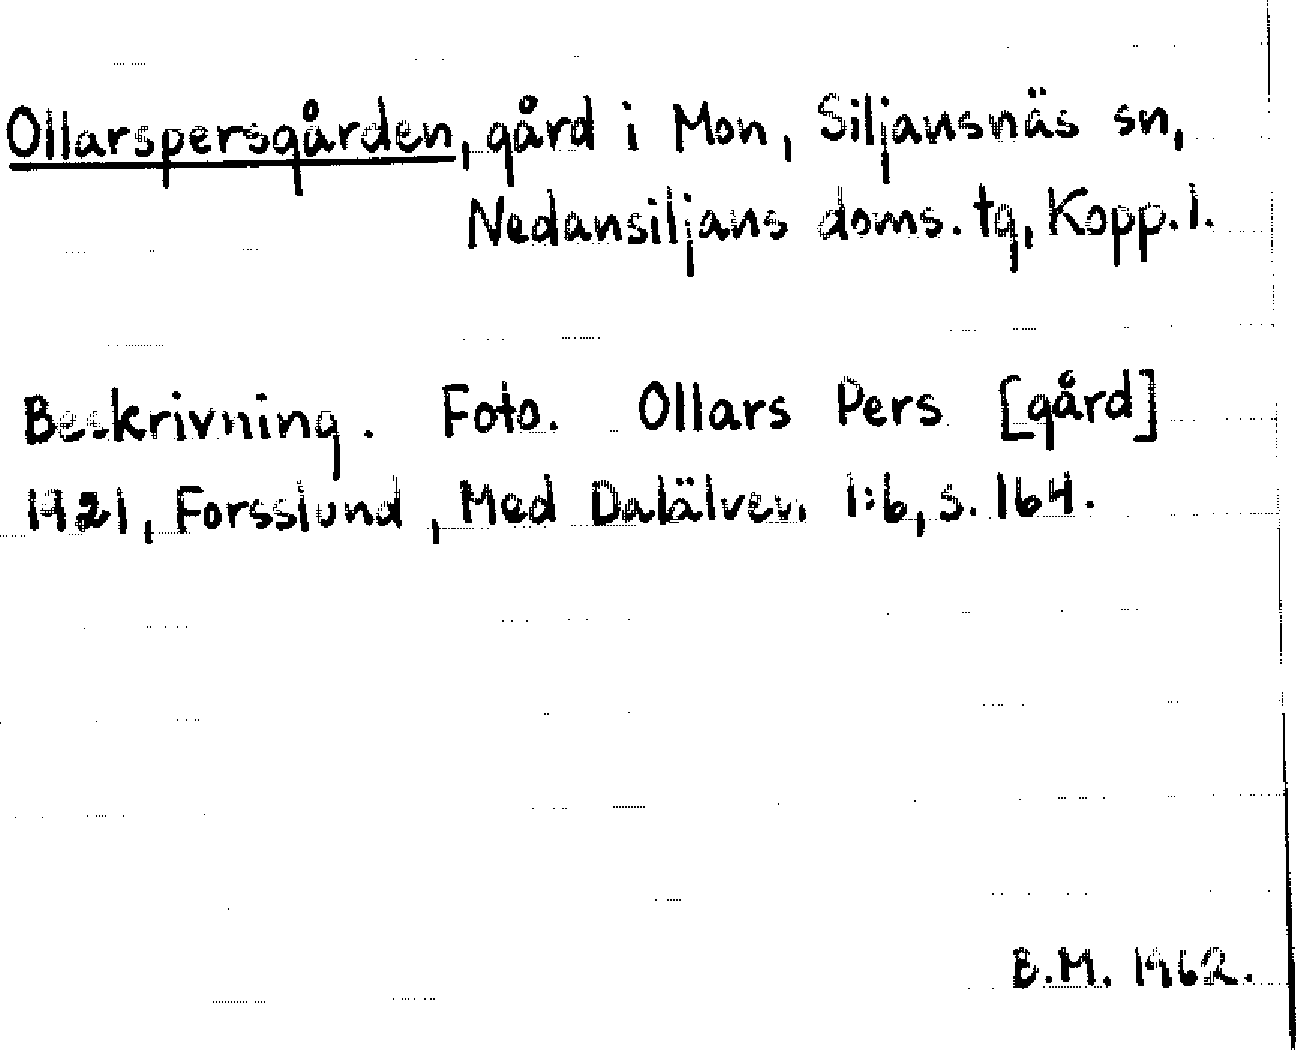 Ollarspersgården, gård i Mon, Siljansnäs sn,
Nedansiljans doms. tg, Kopp. l.
Beskrivning. Foto. Ollars Pers [gård]
1921, Forsslund, Med Dalälven 1:6, s. 164.
B.M. 1962.